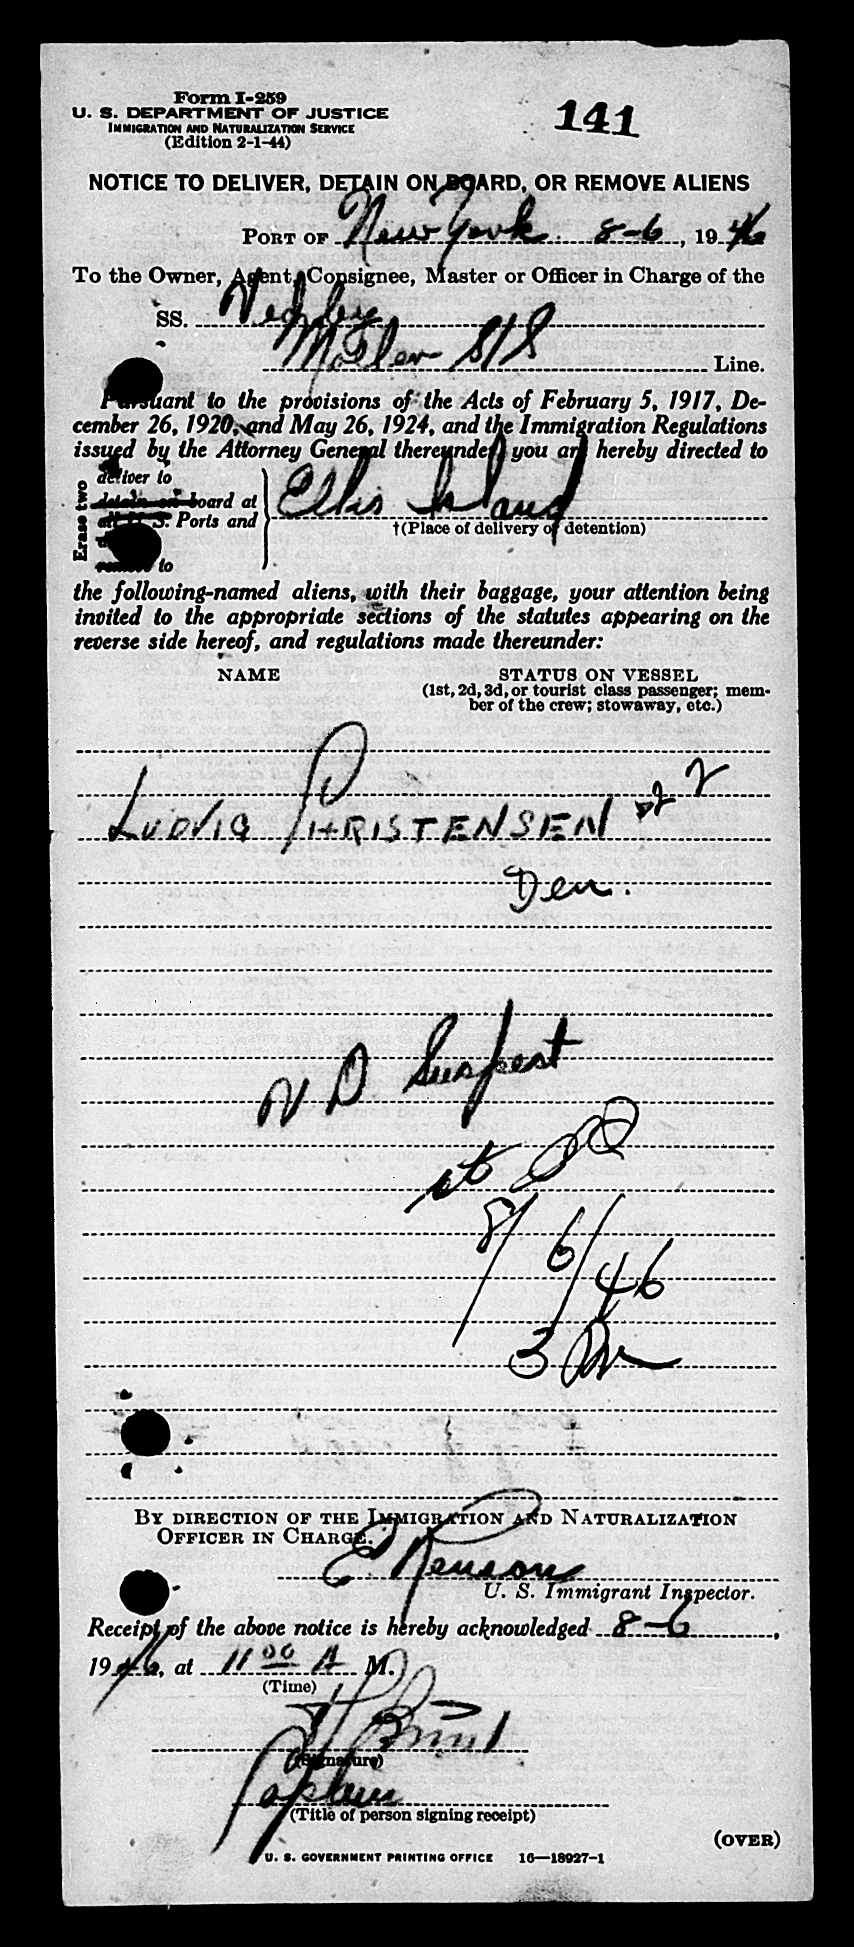 Form I-259
U. S. DEPARTMENT OF JUSTICE
IMMIGRATION AND NATURALIZATION SERVICE
(Edition 2-1-44)
141
NOTICE TO DELIVER, DETAIN ON BOARD, OR REMOVE ALIENS
PORT OF New York 8-6, 1946
To the Owner, Agent, Consignee, Master or Officer in Charge of the
SS.
Moller S/S Line.
Pursuant to the provisions of the Acts of February 5, 1917, De-
cember 26, 1920, and May 26, 1924, and the Immigration Regulations
issued by the Attorney General thereunder, you are hereby directed to
Erase two
deliver to
detain on board at
all U. S. Ports and
remove to
Ellis Island
†(Place of delivery or detention)
the following-named aliens, with their baggage, your attention being
invited to the appropriate sections of the statutes appearing on the
reverse side hereof, and regulations made thereunder:
NAME STATUS ON VESSEL
(1st, 2d, 3d, or tourist class passenger; mem-
ber of the crew; stowaway, etc.)
LUDVIG CHRISTENSEN
Den.
V D Suspect
8/6/46
3 PM
BY DIRECTION OF THE IMMIGRATION AND NATURALIZATION
OFFICER IN CHARGE.
U. S. Immigrant Inspector.
Receipt of the above notice is hereby acknowledged 8-6,
1946, at 11 00 A M.
(Time)
(Signature)
Captain
(Title of person signing receipt)
(OVER)
U. S. GOVERNMENT PRINTING OFFICE 16—18927-1